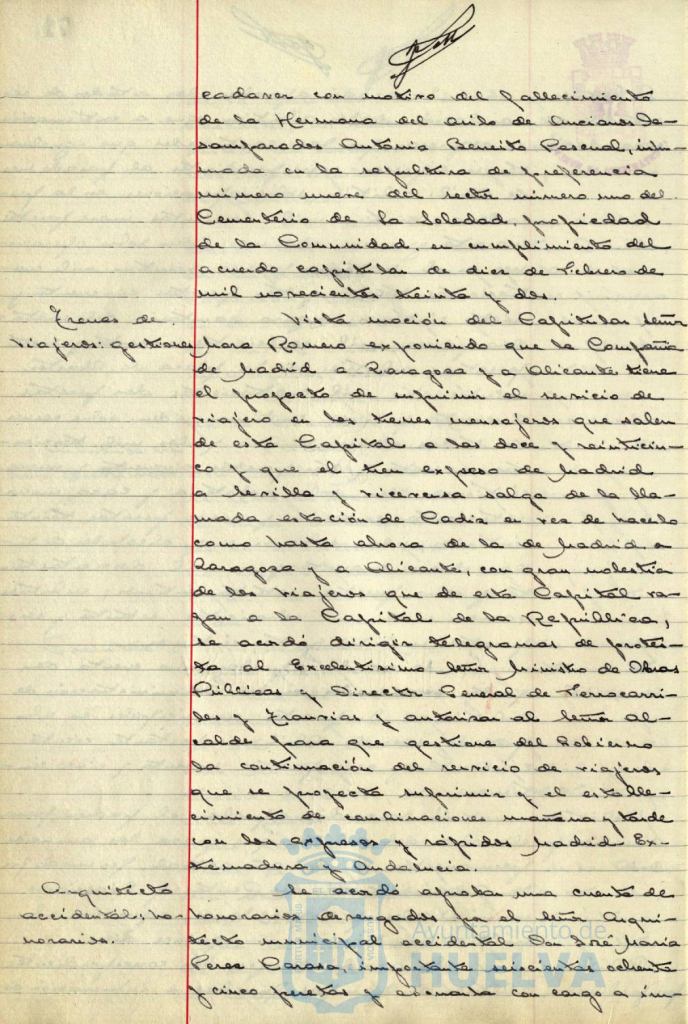 cadaver con motivo del fallecimiento
de la Hermana del asilo de Ancianos De-
samparados Antonia Benito Pascual, inhu-
mada en la sepultura de preferencia
número nueve del sector número uno del
Cementerio de La Soledad, propiedad
de la Comunidad, en cumplimiento del
acuerdo capitular de diez de Febrero de
mil novecientos treinta y dos.
Trenes de
viajeros: gestiones
Vista moción del Capitular Señor
Mora Romero exponiendo que la Compañía
de Madrid a Zaragoza y a Alicante tiene
el proyecto de suprimir el servicio de
viajero en los trenes mensajeros que salen
de esta Capital a las doce y veinticin-
co y que el tren expreso de Madrid
a Sevilla y viceversa salga de la lla-
mada estación de Cadiz en vez de hacerlo
como hasta ahora de la de Madrid a
Zaragoza y a Alicante, con gran molestia
de los viajeros que de esta Capital va-
yan a la Capital de la República,
se acordó dirigir telegramas de protes-
ta al Excelentísimo Señor Ministro de Obras
Públicas y Director General de Ferrocarri-
les y Tranvias y autorizar al Señor Al-
calde para que gestione del Gobierno
la continuación del servicio de viajeros
que se proyecta suprimir y el estable-
cimiento de combinaciones mañana y tarde
con los expresos y rápidos Madrid-Ex-
tremadura y Andalucia.
Arquitecto
accidental: ho-
norarios.
Se acordó aprobar una cuenta de
honorarios devengados por el Señor Arqui-
tecto municipal accidental Don José María
Perez Carasa, importante seiscientas ochenta
y cinco pesetas y abonarla con cargo a im-
Ayuntamiento de
HUELVA